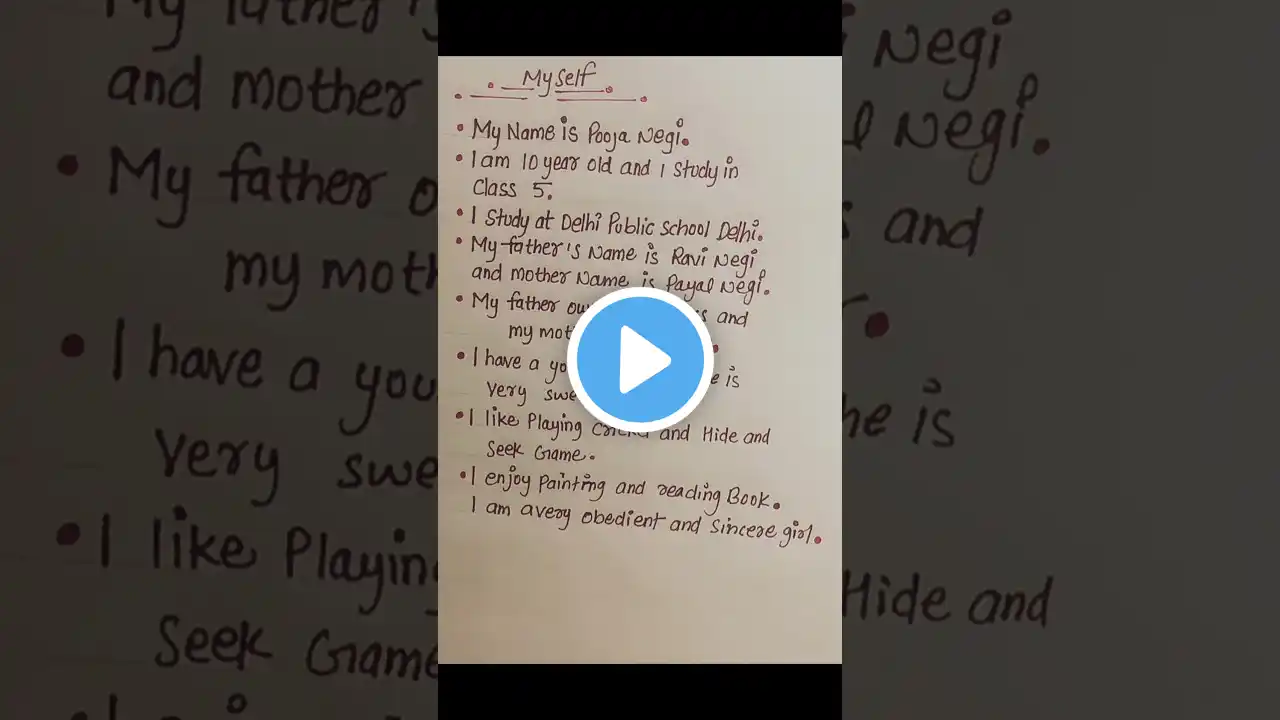 Myself
• My Name is Pooja Negi.
• I am 10 year old and I Study in
Class 5.
• I Study at Delhi Public School Delhi.
• My father's Name is Ravi Negi
and mother Name is Payal Negi.
• My father and
my
• I have a is
Very
• I like Playing Cricket and Hide and
Seek Game.
• I enjoy Painting and reading Book.
I am avery obedient and Sincere girl.